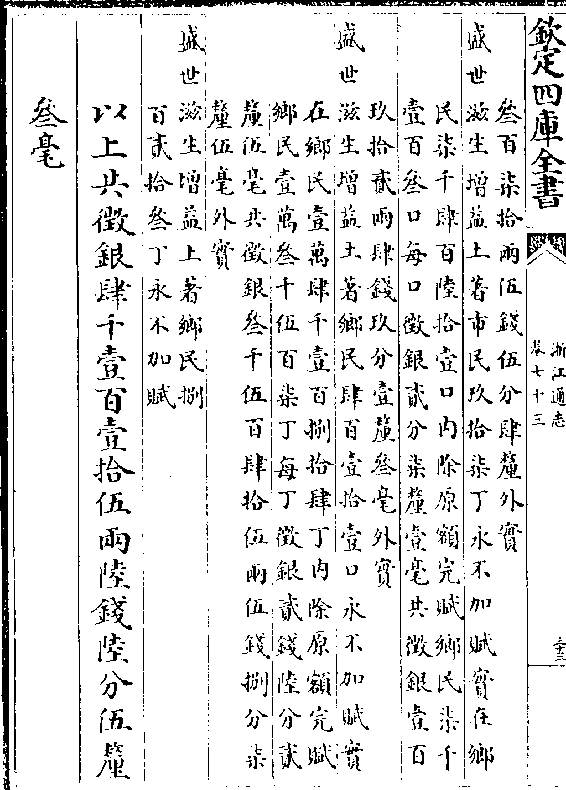 欽定四庫全書
浙江通志
卷七十三
三十三
叄百柒拾兩伍錢伍分肆釐外實
盛世滋生增益土著市民玖拾柒丁永不加賦實在鄉
民柒千肆百陸拾壹口内除原額完賦鄉民柒千
壹百叄口每口徵銀貳分柒釐壹毫共徵銀壹百
玖拾貳兩肆錢玖分壹釐叄毫外實
盛世滋生增益土著鄉民肆百壹拾壹口永不加賦實
在鄉民壹萬肆千壹百捌拾肆丁内除原額完賦
鄉民壹萬叄千伍百柒丁每丁徵銀貳錢陸分貳
釐伍毫共徵銀叄千伍百肆拾伍兩伍錢捌分柒
釐伍毫外實
盛世滋生增益土著鄉民捌
百貳拾叄丁永不加賦
以上共徵銀肆千壹百壹拾伍兩陸錢陸分伍釐
叄毫